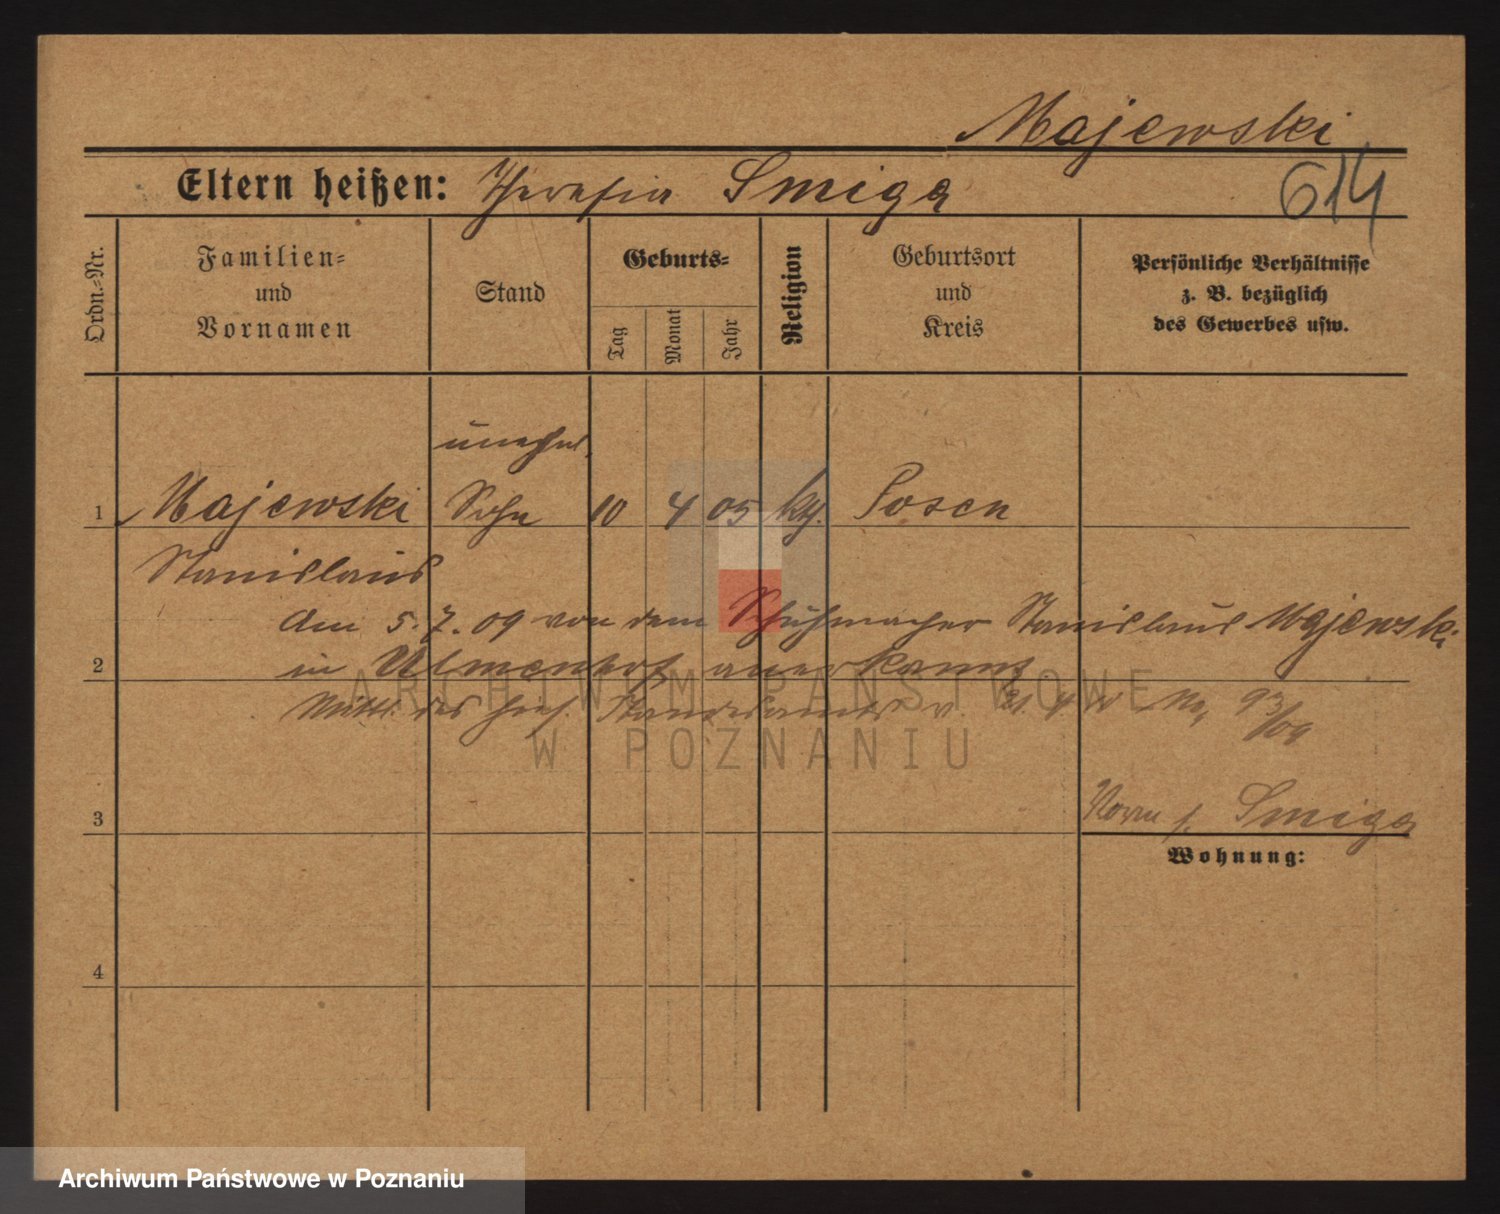 Majewski
614
Eltern heißen: Theresia Smiga
Ordn.-Nr.
Familien-
und
Vornamen
Stand
Geburts-
Tag
Monat
Jahr
Religion
Geburtsort
und
Kreis
Persönliche Verhältnisse
z. B. bezüglich
des Gewerbes usw.
unehel.
1 Majewski Sohn 10 4 05 kth. Posen
Stanislaus
Am 5. 7. 09 von dem Schuhmacher Stanislaus Majewski
2 in Ulmenhof anerkannt
Mittl. des hies. Standesamts v. No. 93/09
3
Smiga
Wohnung:
4
ARCHIWUM PAŃSTWOWE
W POZNANIU
Archiwum Państwowe w Poznaniu